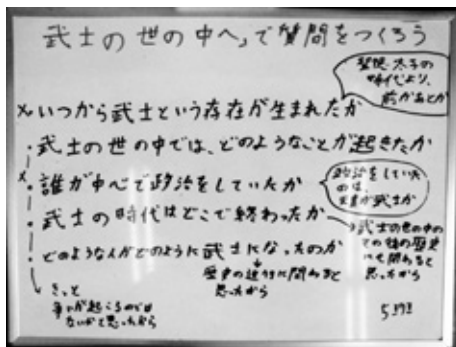 武士の世の中へ、で質問をつくろう
聖徳太子の
時代より、
前かあとか
×いつから武士という存在が生まれたか
・武士の世の中では、どのようなことが起きたか
×・誰が中心で政治をしていたか
政治をしていた
のは、
天皇か武士か
・武士の時代はどこで終わったか
武士の世の中の
歴史
に関わると
思ったから
・どのような人がどのように武士になったのか
歴史の
に関わると
思ったから
きっと
争いが起こるのでは
ないかと思ったから